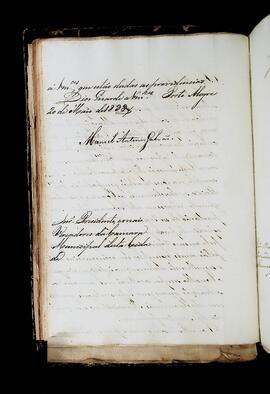 a Vm.ces que estão dadas as providencias.
Deos Guarde a Vm.ces Porto Alegre
20 de Maio de 1832
Manuel Antonio Galvão
Snr.s Presidente, e mais
Vereadores da Camara
Municipal desta Cida
de